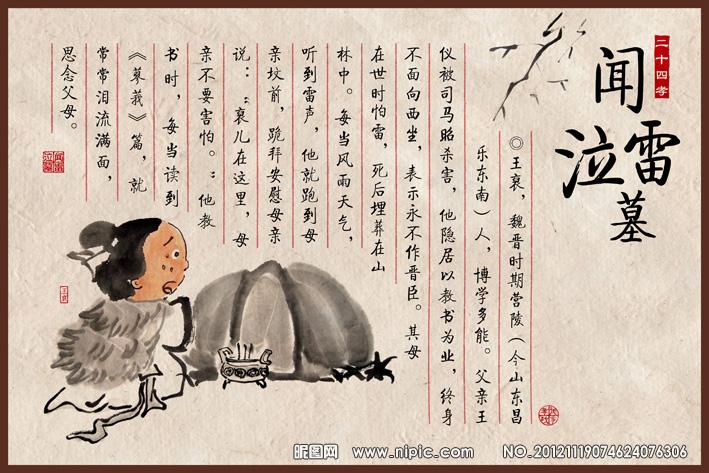 二十四孝
闻雷泣墓
◎王裒，魏晋时期营陵（今山东昌
乐东南）人，博学多能。父亲王
仪被司马昭杀害，他隐居以教书为业，终身
不面向西坐，表示永不作晋臣。其母
在世时怕雷，死后埋葬在山
林中。每当风雨天气，
听到雷声，他就跑到母
亲坟前，跪拜安慰母亲
说：“裒儿在这里，母
亲不要害怕。”他教
书时，每当读到
《蓼莪》篇，就
常常泪流满面，
思念父母。
王裒
昵图网 www.nipic.com
NO.20121119074624076306